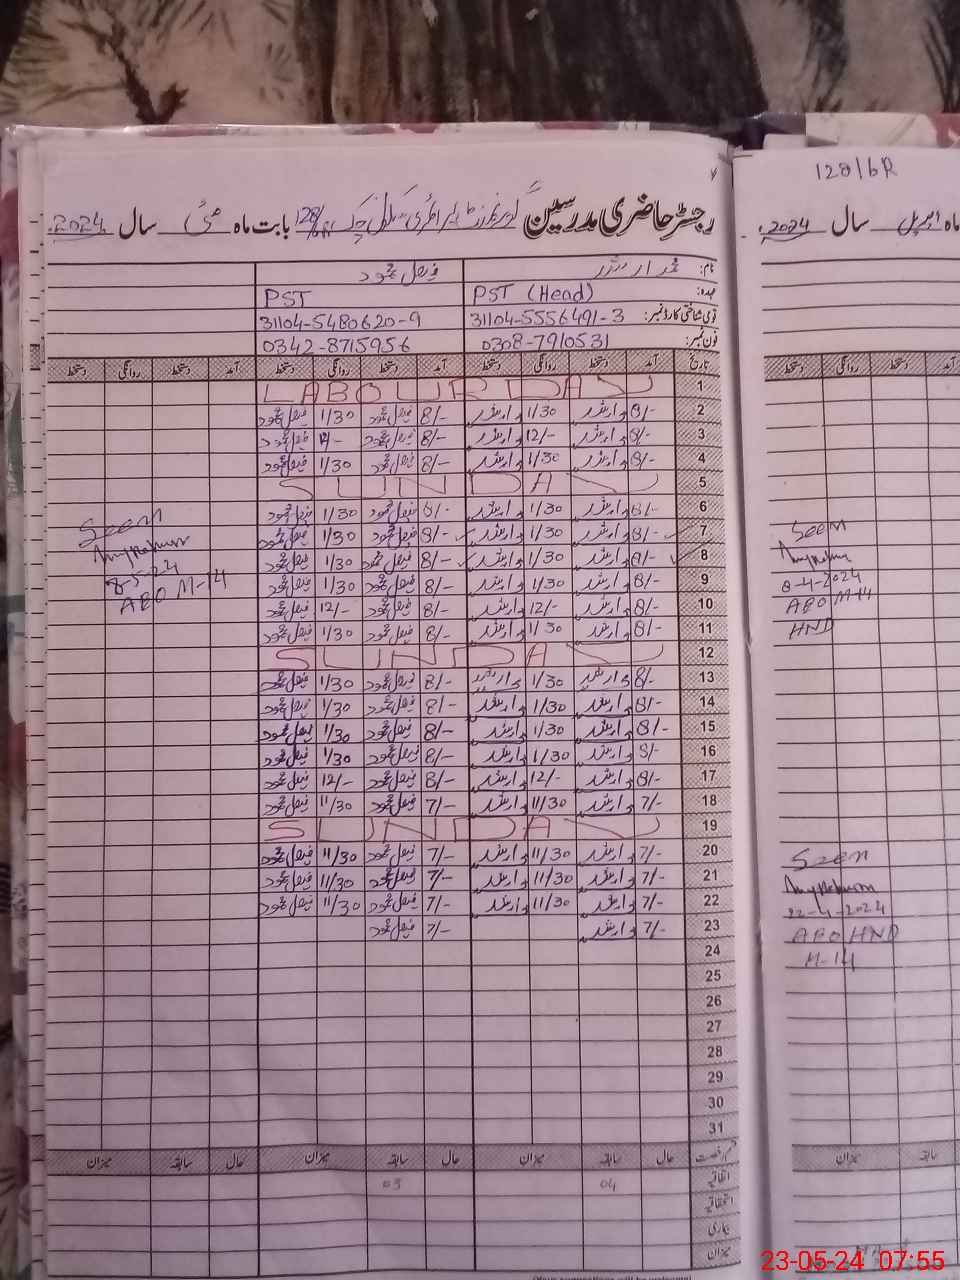 128/6R
رجسٹر حاضری مدرسین گورنمنٹ پرائمری سکول چک 128/6R بابت ماہ مئی سال 2024ء
ماہ اپریل سال 2024ء
نام: محمد ارشد فیصل محمود
عہدہ: PST (Head) PST
قومی شناختی کارڈ نمبر: 31104-5556491-3 31104-5480620-9
فون نمبر: 0308-7910531 0342-8715956
تاریخ آمد دستخط روانگی دستخط آمد دستخط روانگی دستخط آمد دستخط روانگی دستخط
آمد دستخط روانگی دستخط
1 LABOUR DAY
2 8/- ارشد 1/30 ارشد 8/- فیصل محمود 1/30 فیصل محمود
3 8/- ارشد 12/- ارشد 8/- فیصل محمود 12/- فیصل محمود
4 8/- ارشد 1/30 ارشد 8/- فیصل محمود 1/30 فیصل محمود
5 SUNDAY
6 8/- ارشد 1/30 ارشد 8/- فیصل محمود 1/30 فیصل محمود
7 8/- ارشد 1/30 ارشد 8/- فیصل محمود 1/30 فیصل محمود
8 8/- ارشد 1/30 ارشد 8/- فیصل محمود 1/30 فیصل محمود
9 8/- ارشد 1/30 ارشد 8/- فیصل محمود 1/30 فیصل محمود
10 8/- ارشد 12/- ارشد 8/- فیصل محمود 12/- فیصل محمود
11 8/- ارشد 1/30 ارشد 8/- فیصل محمود 1/30 فیصل محمود
12 SUNDAY
13 8/- ارشد 1/30 ارشد 8/- فیصل محمود 1/30 فیصل محمود
14 8/- ارشد 1/30 ارشد 8/- فیصل محمود 1/30 فیصل محمود
15 8/- ارشد 1/30 ارشد 8/- فیصل محمود 1/30 فیصل محمود
16 8/- ارشد 1/30 ارشد 8/- فیصل محمود 1/30 فیصل محمود
17 8/- ارشد 12/- ارشد 8/- فیصل محمود 12/- فیصل محمود
18 7/- ارشد 11/30 ارشد 7/- فیصل محمود 11/30 فیصل محمود
19 SUNDAY
20 7/- ارشد 11/30 ارشد 7/- فیصل محمود 11/30 فیصل محمود
21 7/- ارشد 11/30 ارشد 7/- فیصل محمود 11/30 فیصل محمود
22 7/- ارشد 11/30 ارشد 7/- فیصل محمود 11/30 فیصل محمود
23 7/- ارشد 7/- فیصل محمود
24
25
26
27
28
29
30
31
Seen
8-5-24
AEO M-14
Seen
8-4-2024
AEO M-14
HND
Seen
22-4-2024
AEO HND
M-14
حال سابقہ میزان حال سابقہ میزان حال سابقہ میزان
سابقہ میزان
اتفاقیہ 04 03
استحقاقیہ
بیماری
میزان
23-05-24 07:55